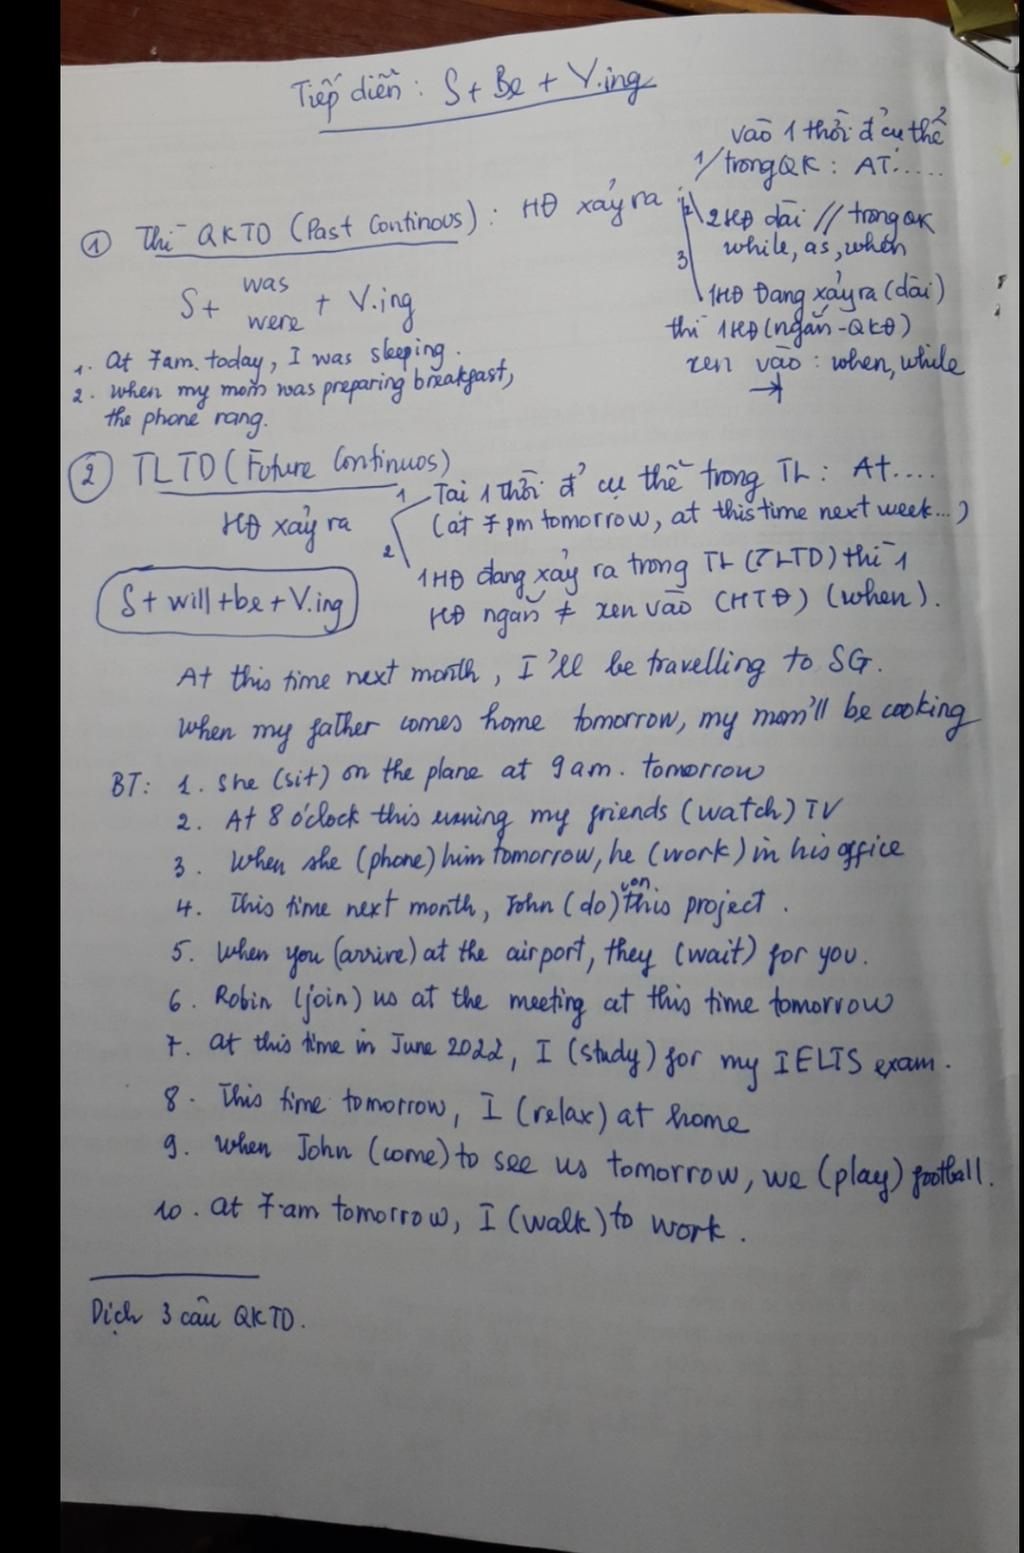 Tiếp diễn: S+ Be + V.ing
① Thì QKTD (Past Continous): HĐ xảy ra:
vào 1 thời đ' cụ thể
1/ trong QK: AT.....
2 2HĐ dài // trong QK
while, as, when
3 1HĐ Đang xảy ra (dài)
thì 1HĐ (ngắn-QKĐ)
xen vào: when, while
S+ was + V.ing
were
1. At 7am. today, I was sleeping.
2. When my mom was preparing breakfast,
the phone rang.
② TLTD (Future Continuos)
HĐ xảy ra
1 Tại 1 thời đ' cụ thể trong TL: At....
(at 7pm tomorrow, at this time next week...)
2 1HĐ đang xảy ra trong TL (TLTD) thì 1
HĐ ngắn ≠ xen vào (HTĐ) (when).
S+ will +be + V.ing
At this time next month, I'll be travelling to SG.
When my father comes home tomorrow, my mom'll be cooking
BT: 1. She (sit) on the plane at 9am. tomorrow
2. At 8 o'clock this evening my friends (watch) TV
3. When she (phone) him tomorrow, he (work) in his office
4. This time next month, John (do) this project.
5. When you (arrive) at the airport, they (wait) for you.
6. Robin (join) us at the meeting at this time tomorrow
7. at this time in June 2022, I (study) for my IELTS exam.
8. This time tomorrow, I (relax) at home
9. When John (come) to see us tomorrow, we (play) football.
10. at 7am tomorrow, I (walk) to work.
Dịch 3 câu QKTD.